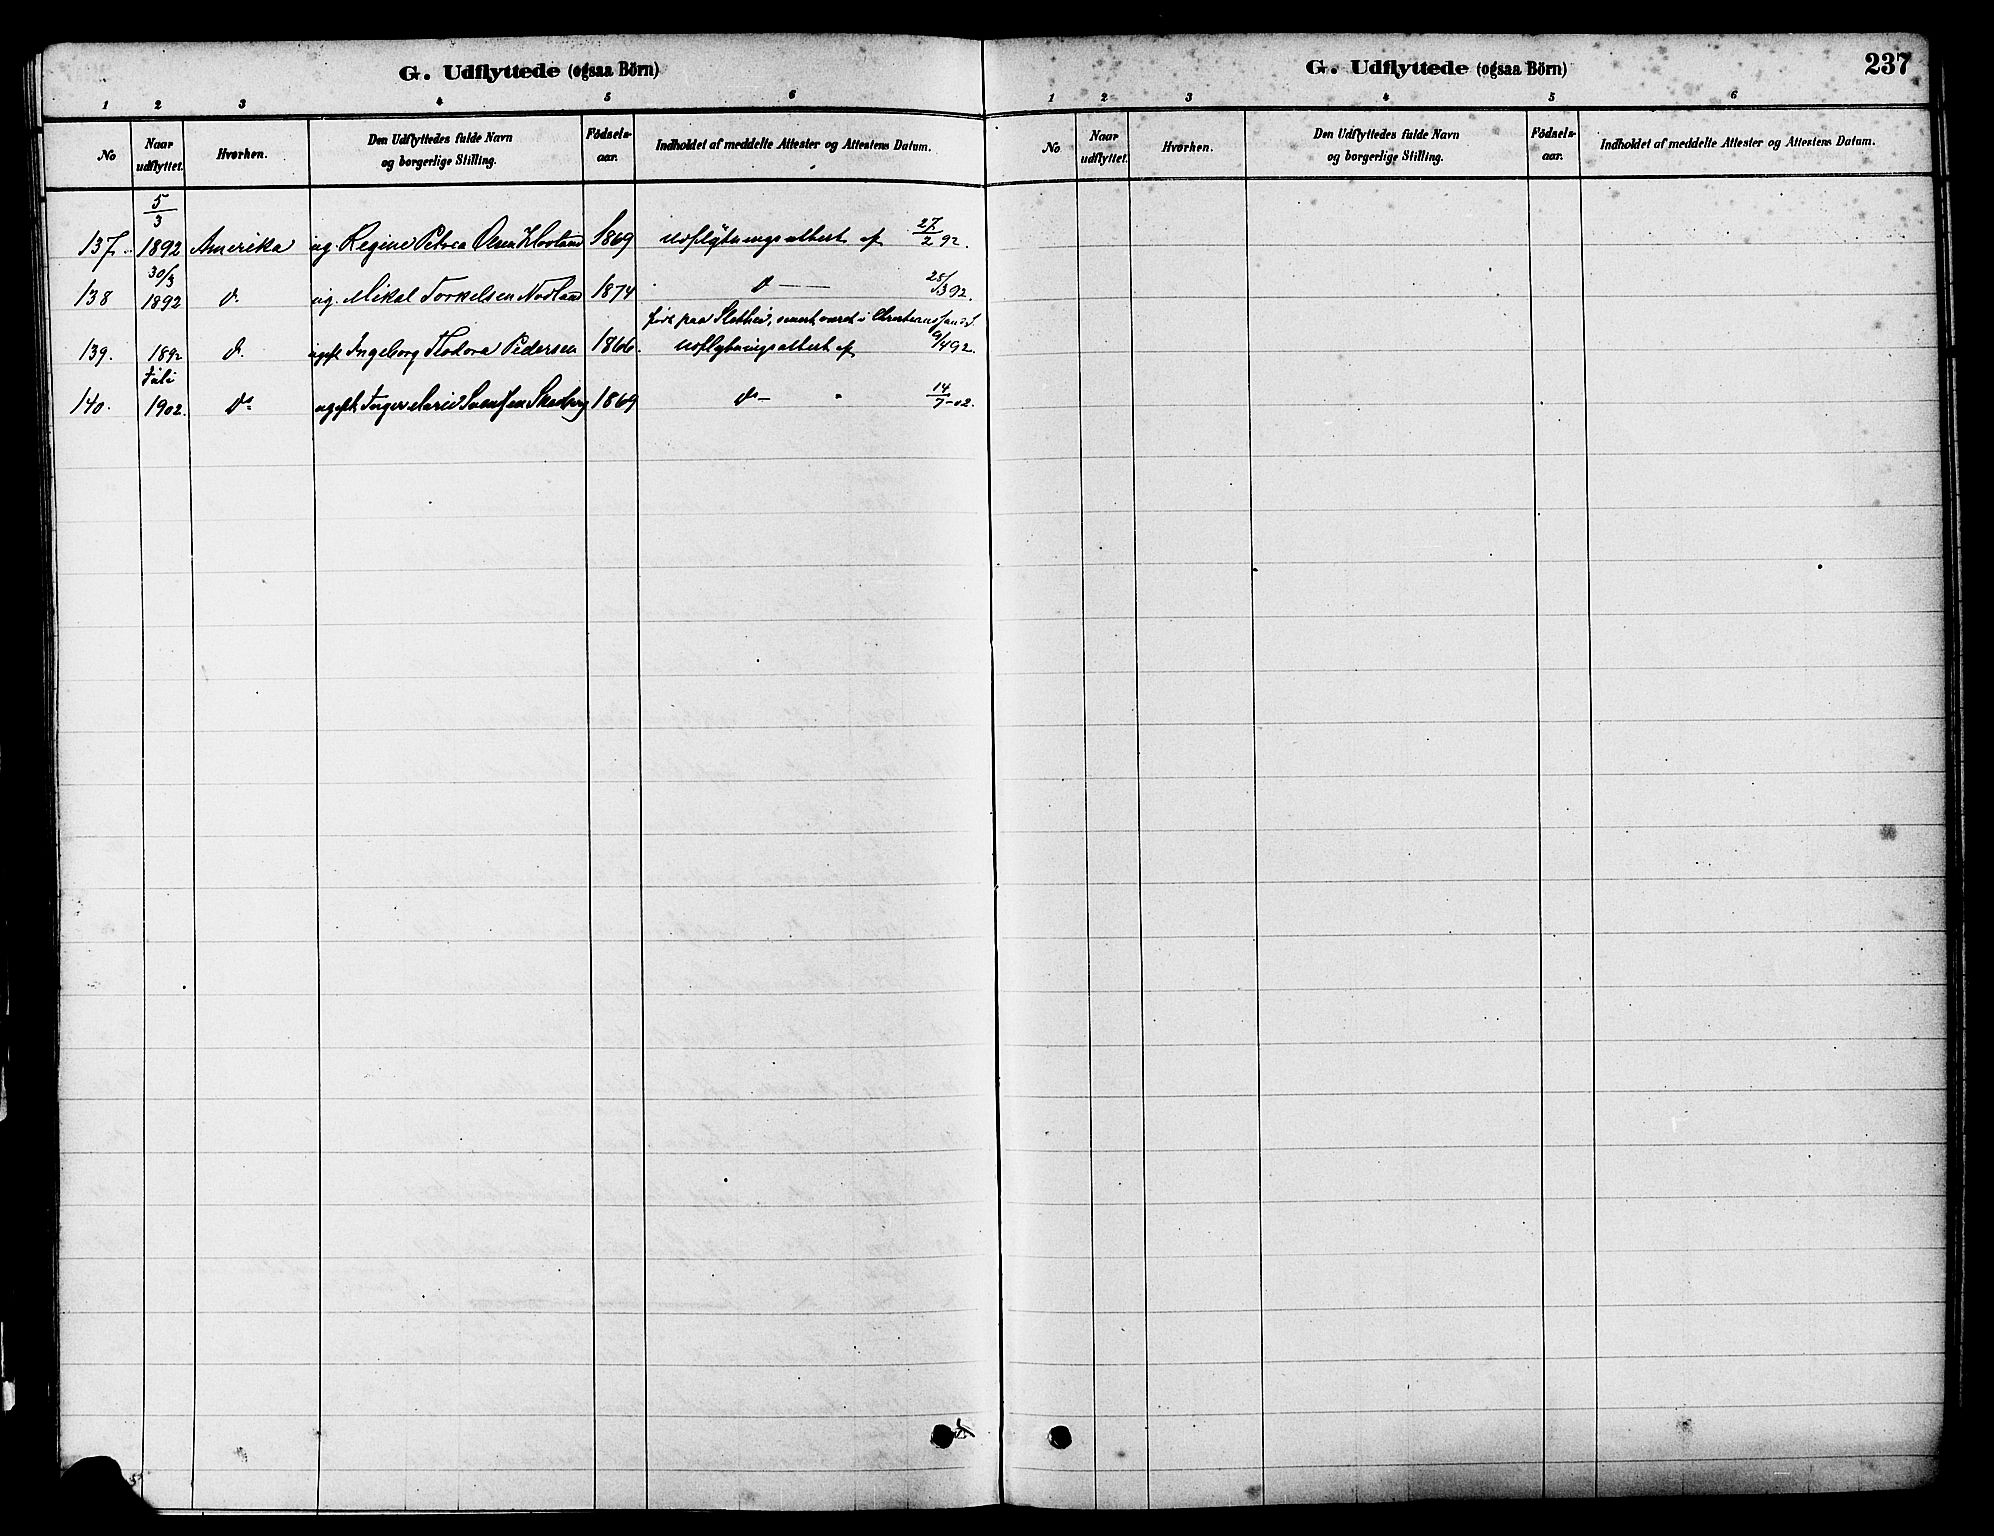 G. Udflyttede (ogsaa Börn)
1 2 3 4 5 6
No Naar udflyttet. Hvorhen. Den Udflyttedes fulde Navn og borgerlige Stilling. Födsels-aar. Indholdet af meddelte Attester og Attestens Datum.
5/3
137. 1892 Amerika ug. Regine Petrea Olsen Hovland 1869 Udflytningsattest af 27/2 92.
30/3
138 1892 do. ug. Mikal Torkelsen Nodland 1874 do — 28/3 92.
født paa Sletthei, senest været i Christianssand S.
139. 1892 do. ugift Ingeborg Thodora Pedersen 1866. Udflytningsattest af 9/4 92.
Juli
140. 1902. do ugift Inger Marie Svendsen 1869 do — " 14/7-02.
G. Udflyttede (ogsaa Börn) 237
1 2 3 4 5 6
No Naar udflyttet. Hvorhen. Den Udflyttedes fulde Navn og borgerlige Stilling. Födsels-aar. Indholdet af meddelte Attester og Attestens Datum.